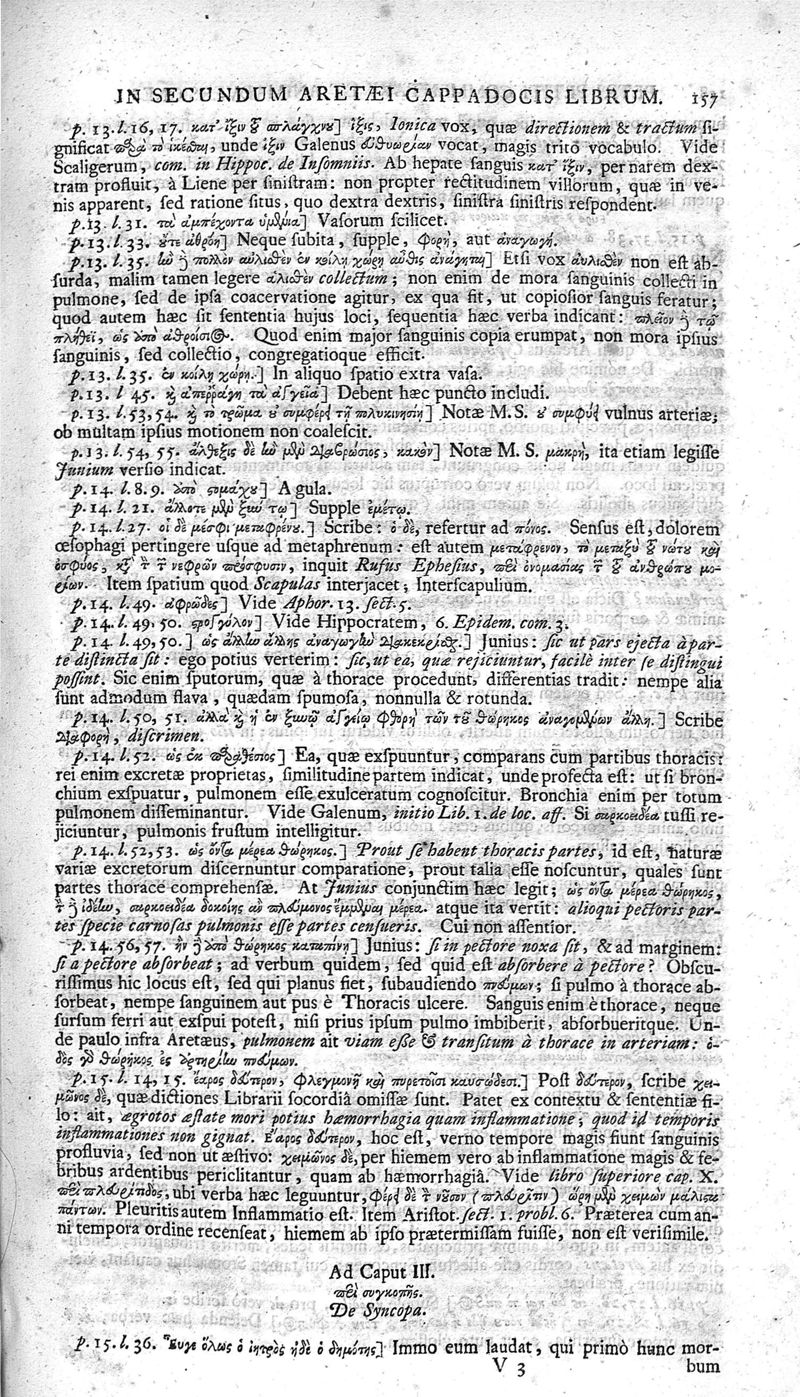 IN SECUNDUM ARETÆI CAPPADOCIS LIBRUM. 157
p. 13. l. 16, 17. κατ' ἴξιν τοῦ σπλάγχνου] ἴξις, Ionica vox, quæ directionem & tractum si-
gnificat παρὰ τὸ ἱκέσθαι, unde ἴξιν Galenus εὐθυωρίαν vocat, magis trito vocabulo. Vide
Scaligerum, com. in Hippoc. de Insomniis. Ab hepate sanguis κατ' ἴξιν, per narem dex-
tram profluit, à Liene per sinistram: non propter rectitudinem villorum, quæ in ve-
nis apparent, sed ratione situs, quo dextra dextris, sinistra sinistris respondent.
p. 13. l. 31. τὰ ἀμπέχοντα] Vasorum scilicet.
p. 13. l. 33. οὔτε ἀθρόη] Neque subita, supple, φορὴ, aut ἀναγωγή.
p. 13. l. 35. ἢν ἢ πολλὸν αὐλισθὲν ἐν κοίλῃ χώρῃ αὖθις] Etsi vox αὐλισθὲν non est ab-
surda, malim tamen legere ἁλισθὲν collectum; non enim de mora sanguinis collecti in
pulmone, sed de ipsa coacervatione agitur, ex qua fit, ut copiosior sanguis feratur;
quod autem hæc sit sententia hujus loci, sequentia hæc verba indicant: πλεῖον ἢ τῷ
πλήθει, ὡς ὑπὸ ἀθροίσιος. Quod enim major sanguinis copia erumpat, non mora ipsius
sanguinis, sed collectio, congregatioque efficit.
p. 13. l. 35. ἐν κοίλῃ χώρῃ.] In aliquo spatio extra vasa.
p. 13. l 45. καὶ ἀπερράγη τὰ ἀγγεῖα] Debent hæc puncto includi.
p. 13. l. 53, 54. καὶ τὸ τρῶμα οὐ συμφέρει τῇ πολυκινησίῃ] Notæ M. S. οὐ συμφύει vulnus arteriæ,
ob multam ipsius motionem non coalescit.
p. 13. l. 54, 55. ἄλθεξις δὲ ἢν μὲν διαβρώσιος, κακὸν] Notæ M. S. μακρὴ, ita etiam legisse
Junium versio indicat.
p. 14. l. 8. 9. ὑπὸ στομάχου] A gula.
p. 14. l. 21. ἄλλοτε μὲν ξὺν τῳ] Supple ἐμέτῳ.
p. 14. l. 27. οἱ δὲ μέσφι μεταφρένου.] Scribe: ὁ δὲ, refertur ad πόνος. Sensus est, dolorem
œsophagi pertingere usque ad metaphrenum: est autem μετάφρενον, τὸ μεταξὺ τοῦ νώτου καὶ
ὀσφύος, κατὰ τὴν τῶν νεφρῶν πρόσφυσιν, inquit Rufus Ephesius, περὶ ὀνομασίας τῶν τοῦ ἀνθρώπου μο-
ρίων. Item spatium quod Scapulas interjacet; Interscapulium.
p. 14. l. 49. ἀφρῶδες] Vide Aphor. 13. sect. 5.
p. 14. l. 49, 50. στρογγύλον] Vide Hippocratem, 6. Epidem. com. 3.
p. 14. l. 49, 50.] ὡς ἄλλην ἄλλης ἀναγωγὴν διακεκρίσθαι.] Junius: sic ut pars ejecta à par-
te distincta sit: ego potius verterim: sic, ut ea, quæ rejiciuntur, facilè inter se distingui
possint. Sic enim sputorum, quæ à thorace procedunt, differentias tradit: nempe alia
sunt admodum flava, quædam spumosa, nonnulla & rotunda.
p. 14. l. 50, 51. ἀλλὰ καὶ ἡ ἐν ξυνῷ ἀγγείῳ φθορὴ τῶν τοῦ θώρηκος ἀναγομένων ἄλλη.] Scribe
διαφορὴ, discrimen.
p. 14. l. 52. ὡς ἐκ παραθέσιος] Ea, quæ exspuuntur, comparans cum partibus thoracis:
rei enim excretæ proprietas, similitudine partem indicat, unde profecta est: ut si bron-
chium exspuatur, pulmonem esse exulceratum cognoscitur. Bronchia enim per totum
pulmonem disseminantur. Vide Galenum, initio Lib. 1. de loc. aff. Si σαρκοειδέα tussi re-
jiciuntur, pulmonis frustum intelligitur.
p. 14. l. 52, 53. ὡς ὄντα μέρεα θώρηκος.] Prout se habent thoracis partes, id est, naturæ
variæ excretorum discernuntur comparatione, prout talia esse noscuntur, quales sunt
partes thorace comprehensæ. At Junius conjunctim hæc legit; ὡς ὄντα μέρεα θώρηκος,
τὴν ἢ ἰδέην, σαρκοειδέα δοκοίης ἂν πλεύμονος ἔμμεναι μέρεα. atque ita vertit: alioqui pectoris par-
tes specie carnosas pulmonis esse partes censueris. Cui non assentior.
p. 14. 56, 57. ἢν ἢ ὑπὸ θώρηκος καταπίνῃ] Junius: si in pectore noxa sit, & ad marginem:
si a pectore absorbeat; ad verbum quidem, sed quid est absorbere à pectore? Obscu-
rissimus hic locus est, sed qui planus fiet, subaudiendo πνεύμων; si pulmo à thorace ab-
sorbeat, nempe sanguinem aut pus è Thoracis ulcere. Sanguis enim è thorace, neque
sursum ferri aut exspui potest, nisi prius ipsum pulmo imbiberit, absorbueritque. Un-
de paulo infra Aretæus, pulmonem ait viam esse & transitum à thorace in arteriam: ὁ-
δὸς γὰρ θώρηκος ἐς ἀρτηρίην πνεύμων.
p. 15. l. 14, 15. ἔαρος δεύτερον, φλεγμονῇ καὶ πυρετοῖσι καυσώδεσι.] Post δεύτερον, scribe χει-
μῶνος δὲ, quæ dictiones Librarii socordiâ omissæ sunt. Patet ex contextu & sententiæ fi-
lo: ait, ægrotos æstate mori potius hæmorrhagia quam inflammatione; quod id temporis
inflammationes non gignat. Ἔαρος δεύτερον, hoc est, verno tempore magis fiunt sanguinis
profluvia, sed non ut æstivo: χειμῶνος δὲ, per hiemem vero ab inflammatione magis & fe-
bribus ardentibus periclitantur, quam ab hæmorrhagiâ. Vide libro superiore cap. X.
περὶ πλευρίτιδος, ubi verba hæc leguuntur, φέρει δὲ τὴν νοῦσον (πλευρῖτιν) ὥρη μὲν χειμὼν μάλιστα
πάντων. Pleuritis autem Inflammatio est. Item Aristot. sect. 1. probl. 6. Præterea cum an-
ni tempora ordine recenseat, hiemem ab ipso prætermissam fuisse, non est verisimile.
Ad Caput III.
περὶ συγκοπῆς.
De Syncopa.
p. 15. l. 36. Εὖγε ὅλως ὁ ἰητρὸς ἠδὲ ὁ δημότης] Immo eum laudat, qui primò hunc mor-
V 3 bum